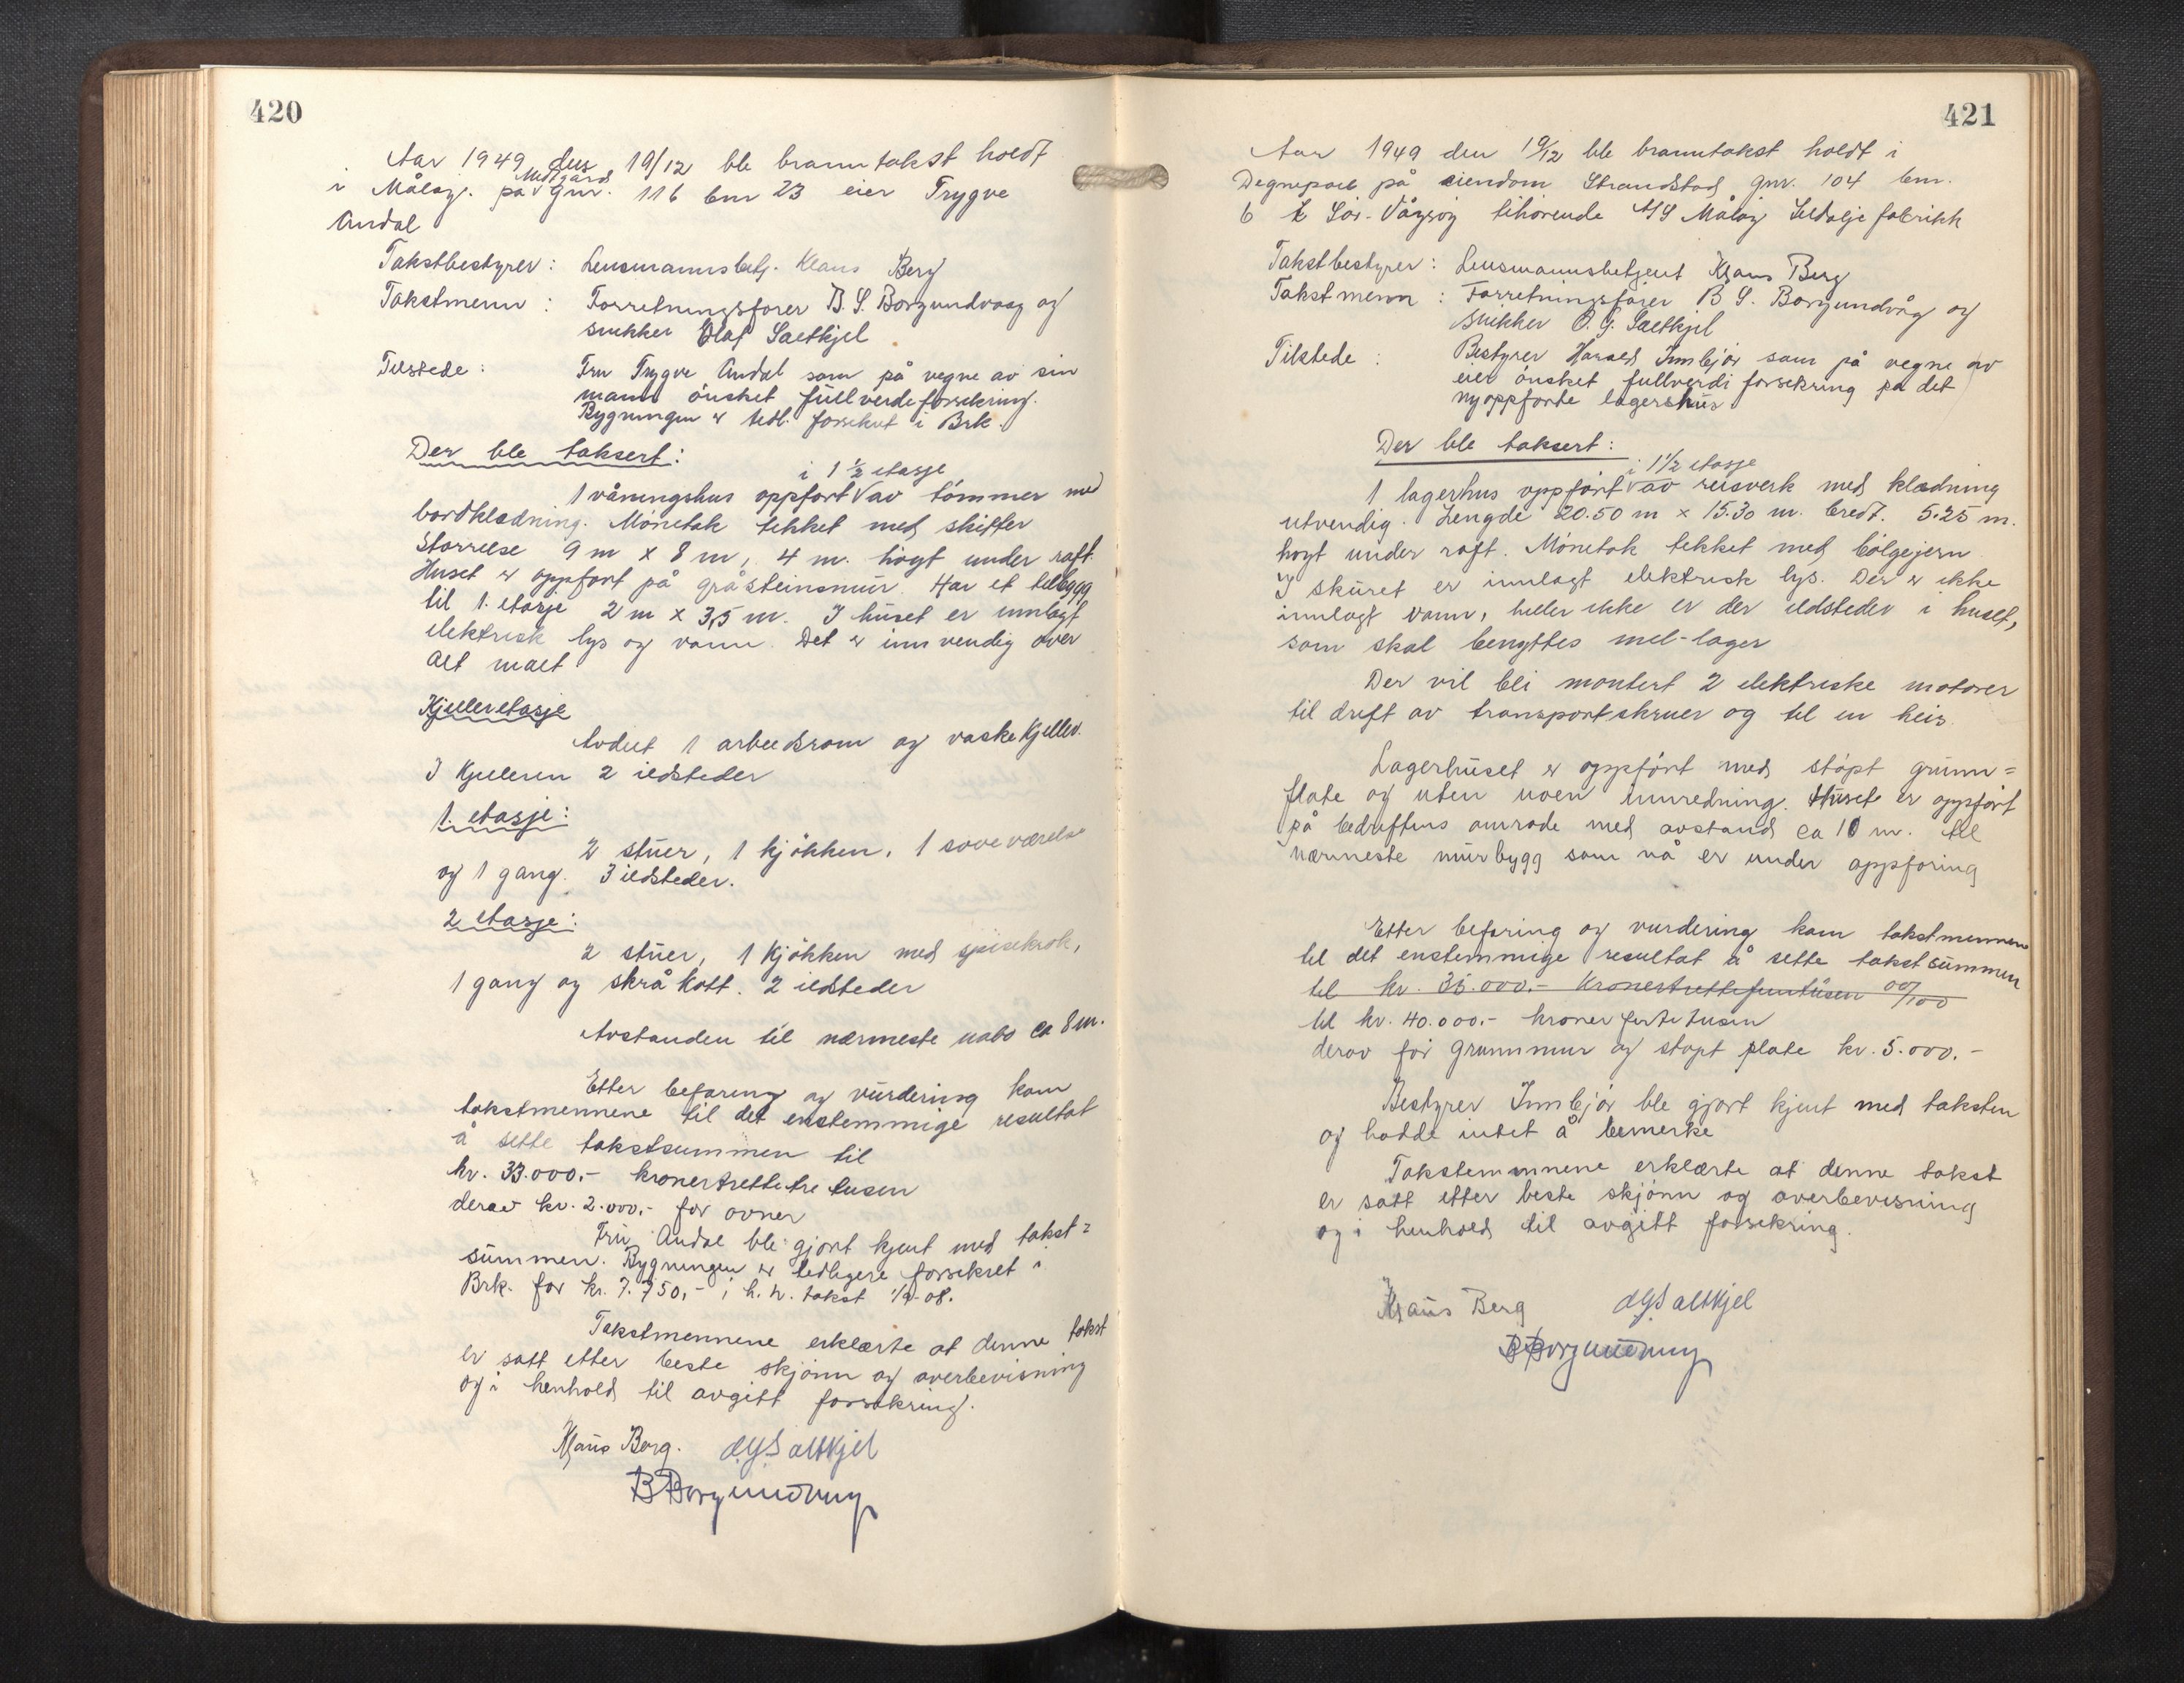 420
Aar 1949 den 19/12 ble branntakst holdt
i Måløy. på Midtgård gnr. 116 bnr 23 eier Trygve
Andal
Takstbestyrer: Lensmannsbetj. Klaus Berg
Takstmenn: Forretningsfører B. S. Borgundvaag og
snikker Olaf Sætkjel
Tilstede: Fru Trygve Andal som på vegne av sin
mann ønsket fullverdeforsikring.
Bygningen er tidl. forsikret i Brk.
Der ble taksert:
i 1 1/2 etasje
1 våningshus oppført av tømmer med
bordkledning. Mønetak tekket med skiffer
Størrelse 9 m x 8 m, 4 m. høgt under raft.
Huset er oppført på gråsteinsmur. Har et tilbygg
til 1. etasje 2 m x 3,5 m. I huset er innlagt
elektrisk lys og vann. Det er innvendig over
alt malt
Kjelleretasje
Avdelt 1 arbeidsrom og vaskekjeller.
I kjelleren 2 ildsteder
1. etasje:
2 stuer, 1 kjøkken, 1 soveværelse
og 1 gang. 3 ildsteder.
2 etasje:
2 stuer, 1 kjøkken med spisekrok,
1 gang og skråkott. 2 ildsteder
Avstanden til nærmeste nabo ca 8 m.
Etter befaring og vurdering kom
takstmennene til det enstemmige resultat
å sette takstsummen til
kr. 33.000.- kronertrettitre tusen
derav kr. 2.000.- for ovner
Fru Andal ble gjort kjent med takst=
summen. Bygningen er tidligere forsikret i
Brk. for kr. 7.750,- i h. h. takst 1/9-08.
Takstmennene erklærte at denne takst
er satt etter beste skjønn og overbevisning
og i henhold til avgitt forsikring.
Klaus Berg. O.G.Sætkjel
B Borgundvaag
421
Aar 1949 den 19/12 ble branntakst holdt i
Degnepoll på eiendom Strandstad gnr. 104 bnr.
6 i Sør-Vågsøy tihørende A/S Måløy Sildolje fabrikk
Takstbestyrer: Lensmannsbetjent Klaus Berg
Takstmenn: Forretningsfører B S. Borgundvåg og
snikker O. G. Sætkjel
Tilstede: Bestyrer Harald Innbjør som på vegne av
eier ønsket fullverdi forsikring på det
nyoppførte lagerhus
Der ble taksert:
i 1 1/2 etasje
1 lagerhus oppført av reisverk med kledning
utvendig. Lengde 20.50 m x 15.30 m. bredt. 5.25 m.
høgt under raft. Mønetak tekket med bølgejern
I skuret er innlagt elektrisk lys. Der er ikke
innlagt vann, heller ikke er der ildsteder i huset,
som skal benyttes mel-lager
Der vil bli montert 2 elektriske motorer
til drift av transportskruer og til en heis.
Lagerhuset er oppført med støpt grunn=
flate og uten noen innredning. Huset er oppført
på bedriftens område med avstand ca 10 m. til
nærmeste murbygg som nå er under oppføring
Etter befaring og vurdering kom takstmennene
til det enstemmige resultat å sette takstsummen
til kr. 35.000.- Kronertrettifemtusen 00/100
til kr. 40.000.- kroner førti tusen
derav for grunnmur og støpt plate kr. 5.000.-
Bestyrer Innbjør ble gjort kjent med taksten
og hadde intet å bemerke
Takstemnnene erklærte at denne takst
er satt etter beste skjønn og overbevisning
og i henhold til avgitt forsikring.
Klaus Berg O.G.Sætkjel
B Borgundvaag